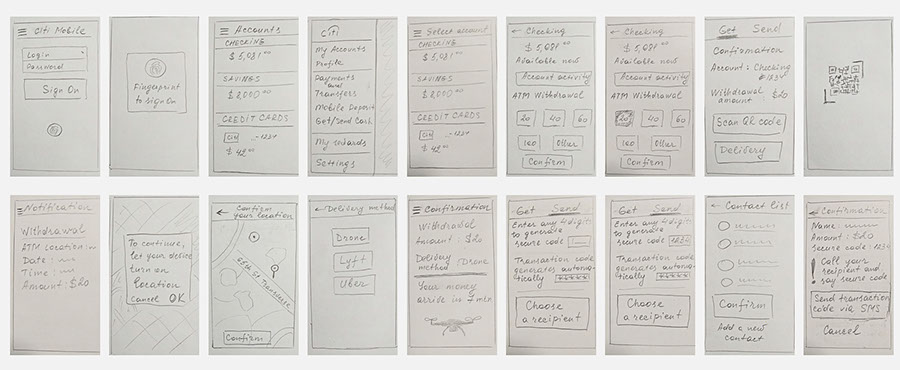 Citi Mobile
Login
Password
Sign On
Fingerprint
to sign on
Accounts
CHECKING
$ 5,081 00
SAVINGS
$ 2,000 00
CREDIT CARDS
Citi ...-1234
$ 42 00
citi
My Accounts
Profile
Payments
and
Transfers
Mobile Deposit
Get/Send Cash
My rewards
Settings
Select account
CHECKING
$ 5,081 00
SAVINGS
$ 2,000 00
CREDIT CARDS
Citi ...-1234
$ 42 00
← Checking
$ 5,081 00
Available now
Account activity
ATM Withdrawal
20 40 60
100 Other
Confirm
← Checking
$ 5,081 00
Available now
Account activity
ATM Withdrawal
20 40 60
100 Other
Confirm
Get Send
Confirmation
Account: Checking
#1234
Withdrawal
amount: $20
Scan QR code
Delivery
Notification
Withdrawal
ATM Location:
Date:
Time:
Amount: $20
To continue,
let your device
turn on
location
Cancel OK
← Confirm
your location
65th St Transverse
Confirm
← Delivery method
Drone
Lyft
Uber
Confirmation
Withdrawal
Amount: $20
Delivery
method: Drone
Your money
arrive in 7 min
Get Send
Enter any 4 digits
to generate
secure code
Transaction code
generates automa-
tically ****
Choose
a recipient
Get Send
Enter any 4 digits
to generate
secure code 1234
Transaction code
generates automa-
tically ****
Choose
a recipient
← Contact list
Confirm
Add a new
contact
Confirmation
Name:
Amount: $20
Secure code: 1234
! Call your
recipient and
say secure code
Send transaction
code via SMS
Cancel